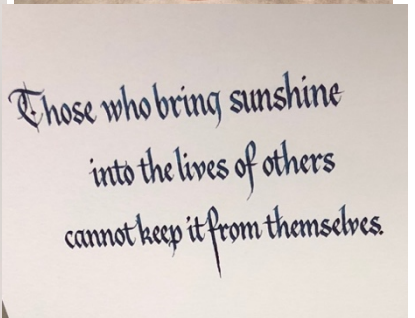 Those who bring sunshine
into the lives of others
cannot keep it from themselves.